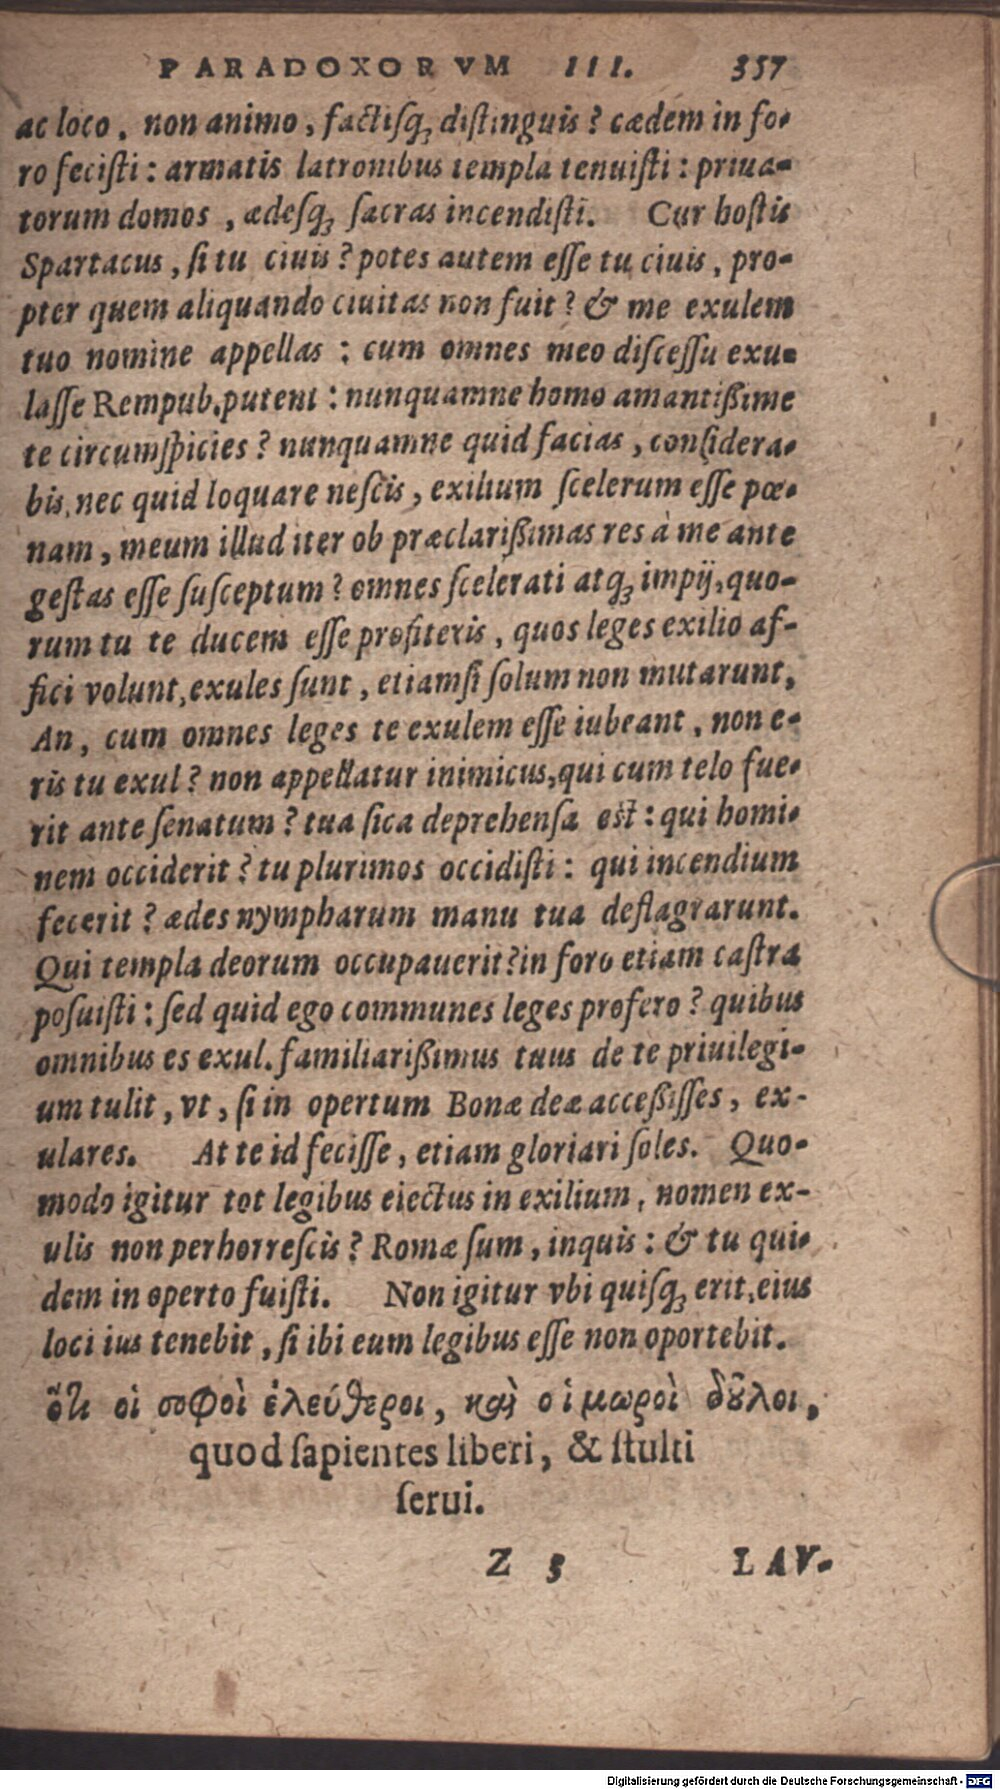 PARADOXORVM III. 357
ac loco, non animo, factisq; distinguis? cædem in fo-
ro fecisti: armatis latronibus templa tenuisti: priua-
torum domos, ædesq; sacras incendisti. Cur hostis
Spartacus, si tu ciuis? potes autem esse tu ciuis, pro-
pter quem aliquando ciuitas non fuit? & me exulem
tuo nomine appellas: cum omnes meo discessu exu-
lasse Rempub. putent: nunquamne homo amantißime
te circumspicies? nunquamne quid facias, considera-
bis, nec quid loquare nescis, exilium scelerum esse pœ-
nam, meum illud iter ob præclarißimas res à me ante
gestas esse susceptum? omnes scelerati atq; impij, quo-
rum tu te ducem esse profiteris, quos leges exilio af-
fici volunt, exules sunt, etiamsi solum non mutarunt,
An, cum omnes leges te exulem esse iubeant, non e-
ris tu exul? non appellatur inimicus, qui cum telo fue-
rit ante senatum? tua sica deprehensa est: qui homi-
nem occiderit? tu plurimos occidisti: qui incendium
fecerit? ædes nympharum manu tua deflagrarunt.
Qui templa deorum occupauerit? in foro etiam castra
posuisti: sed quid ego communes leges profero? quibus
omnibus es exul. familiarißimus tuus de te priuilegi-
um tulit, vt, si in opertum Bonæ deæ acceßisses, ex-
ulares. At te id fecisse, etiam gloriari soles. Quo-
modo igitur tot legibus eiectus in exilium, nomen ex-
ulis non perhorrescis? Romæ sum, inquis: & tu qui-
dem in operto fuisti. Non igitur vbi quisq; erit, eius
loci ius tenebit, si ibi eum legibus esse non oportebit.
ὅτι οἱ σοφοὶ ἐλεύθεροι, καὶ οἱ μωροὶ δοῦλοι,
quod sapientes liberi, & stulti
serui.
Z 3 LAV-
Digitalisierung gefördert durch die Deutsche Forschungsgemeinschaft - DFG